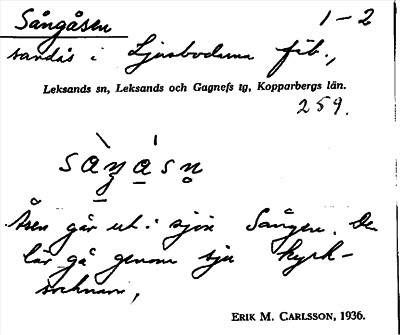 Sångåsen 1–2
sandås i Ljusbodarna fäb.,
Leksands sn, Leksands och Gagnefs tg, Kopparbergs län.
259.
Åsen går ut i sjön Sången. Den
lär gå genom sju kyrk-
socknar,
ERIK M. CARLSSON, 1936.